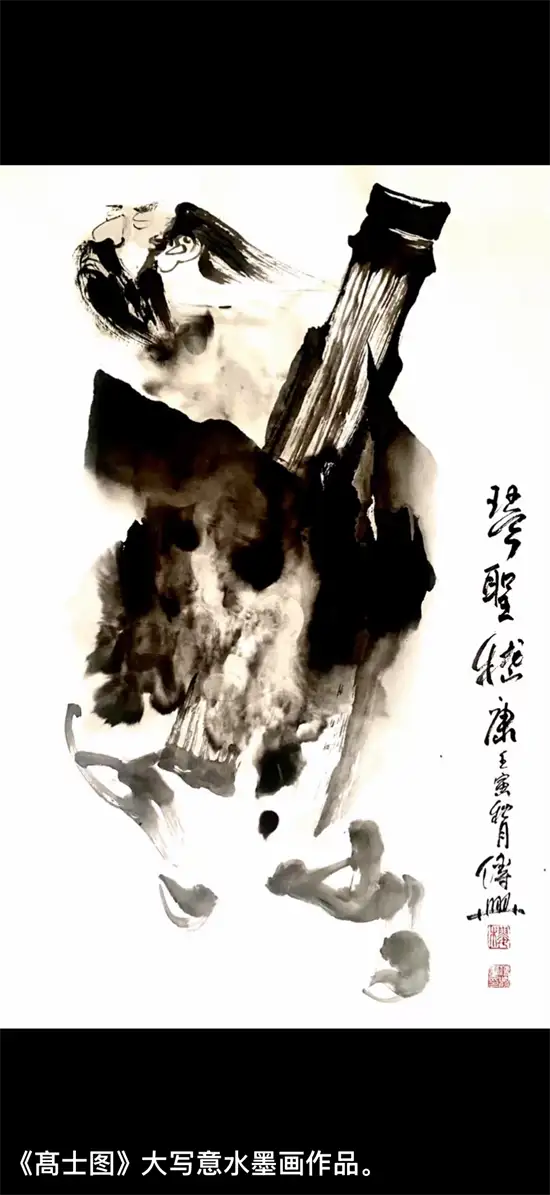 琴聖嵇康
壬寅秋月
傅興
《髙士图》大写意水墨画作品。